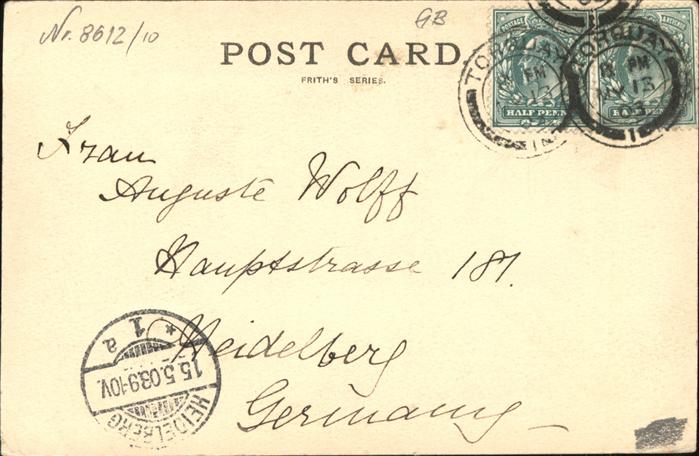 Nr. 8612/10
GB
POST CARD.
FRITH'S SERIES.
POSTAGE
HALF PENN
HALF PENN
TORQUAY
PM
MY 13
TORQUAY
PM
MY 13
03
Frau
Auguste Wolff
Hauptstrasse 181.
Heidelberg
Germany
* 1 a
15.5.03.9-10V.
HEIDELBERG